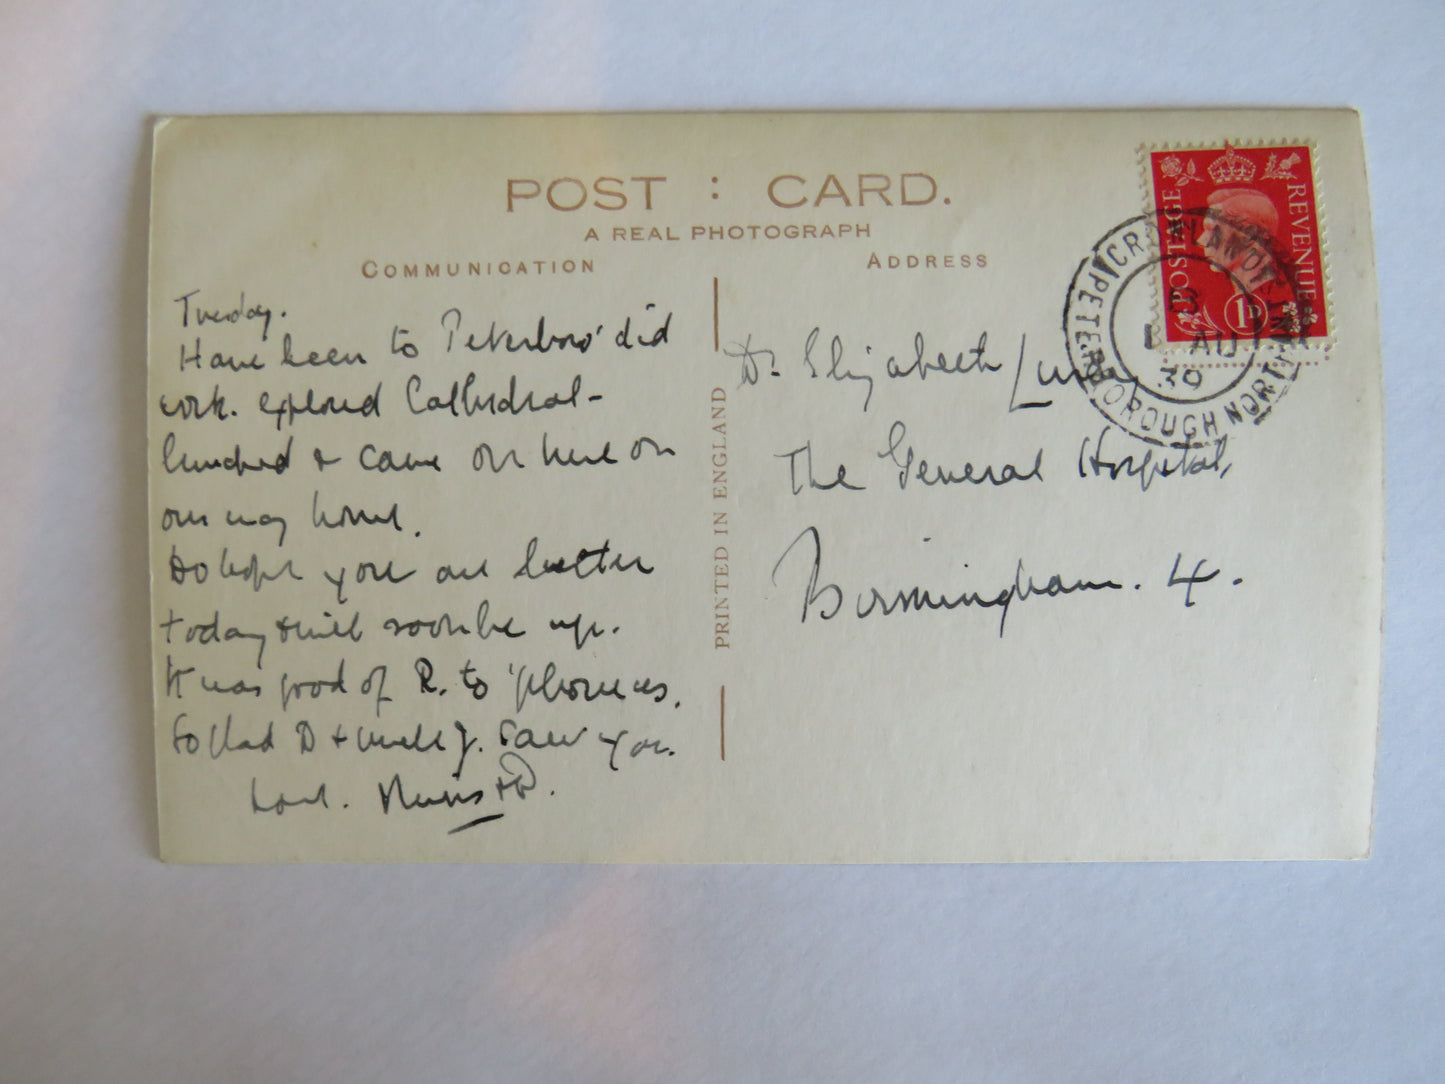 POST : CARD.
A REAL PHOTOGRAPH
COMMUNICATION
ADDRESS
POSTAGE
REVENUE
1D
CROWLAND
PETERBOROUGH NORTH
B
1 AU
39
PRINTED IN ENGLAND
Tuesday.
Have been to Peterboro' did
work. explored Cathedral -
lunched & came on here on
our way home.
Do hope you are better
today & will soon be up.
It was good of R. to 'phone us.
So glad D + J. saw you.
Love.
Dr Elizabeth
The General Hospital,
Birmingham. 4.